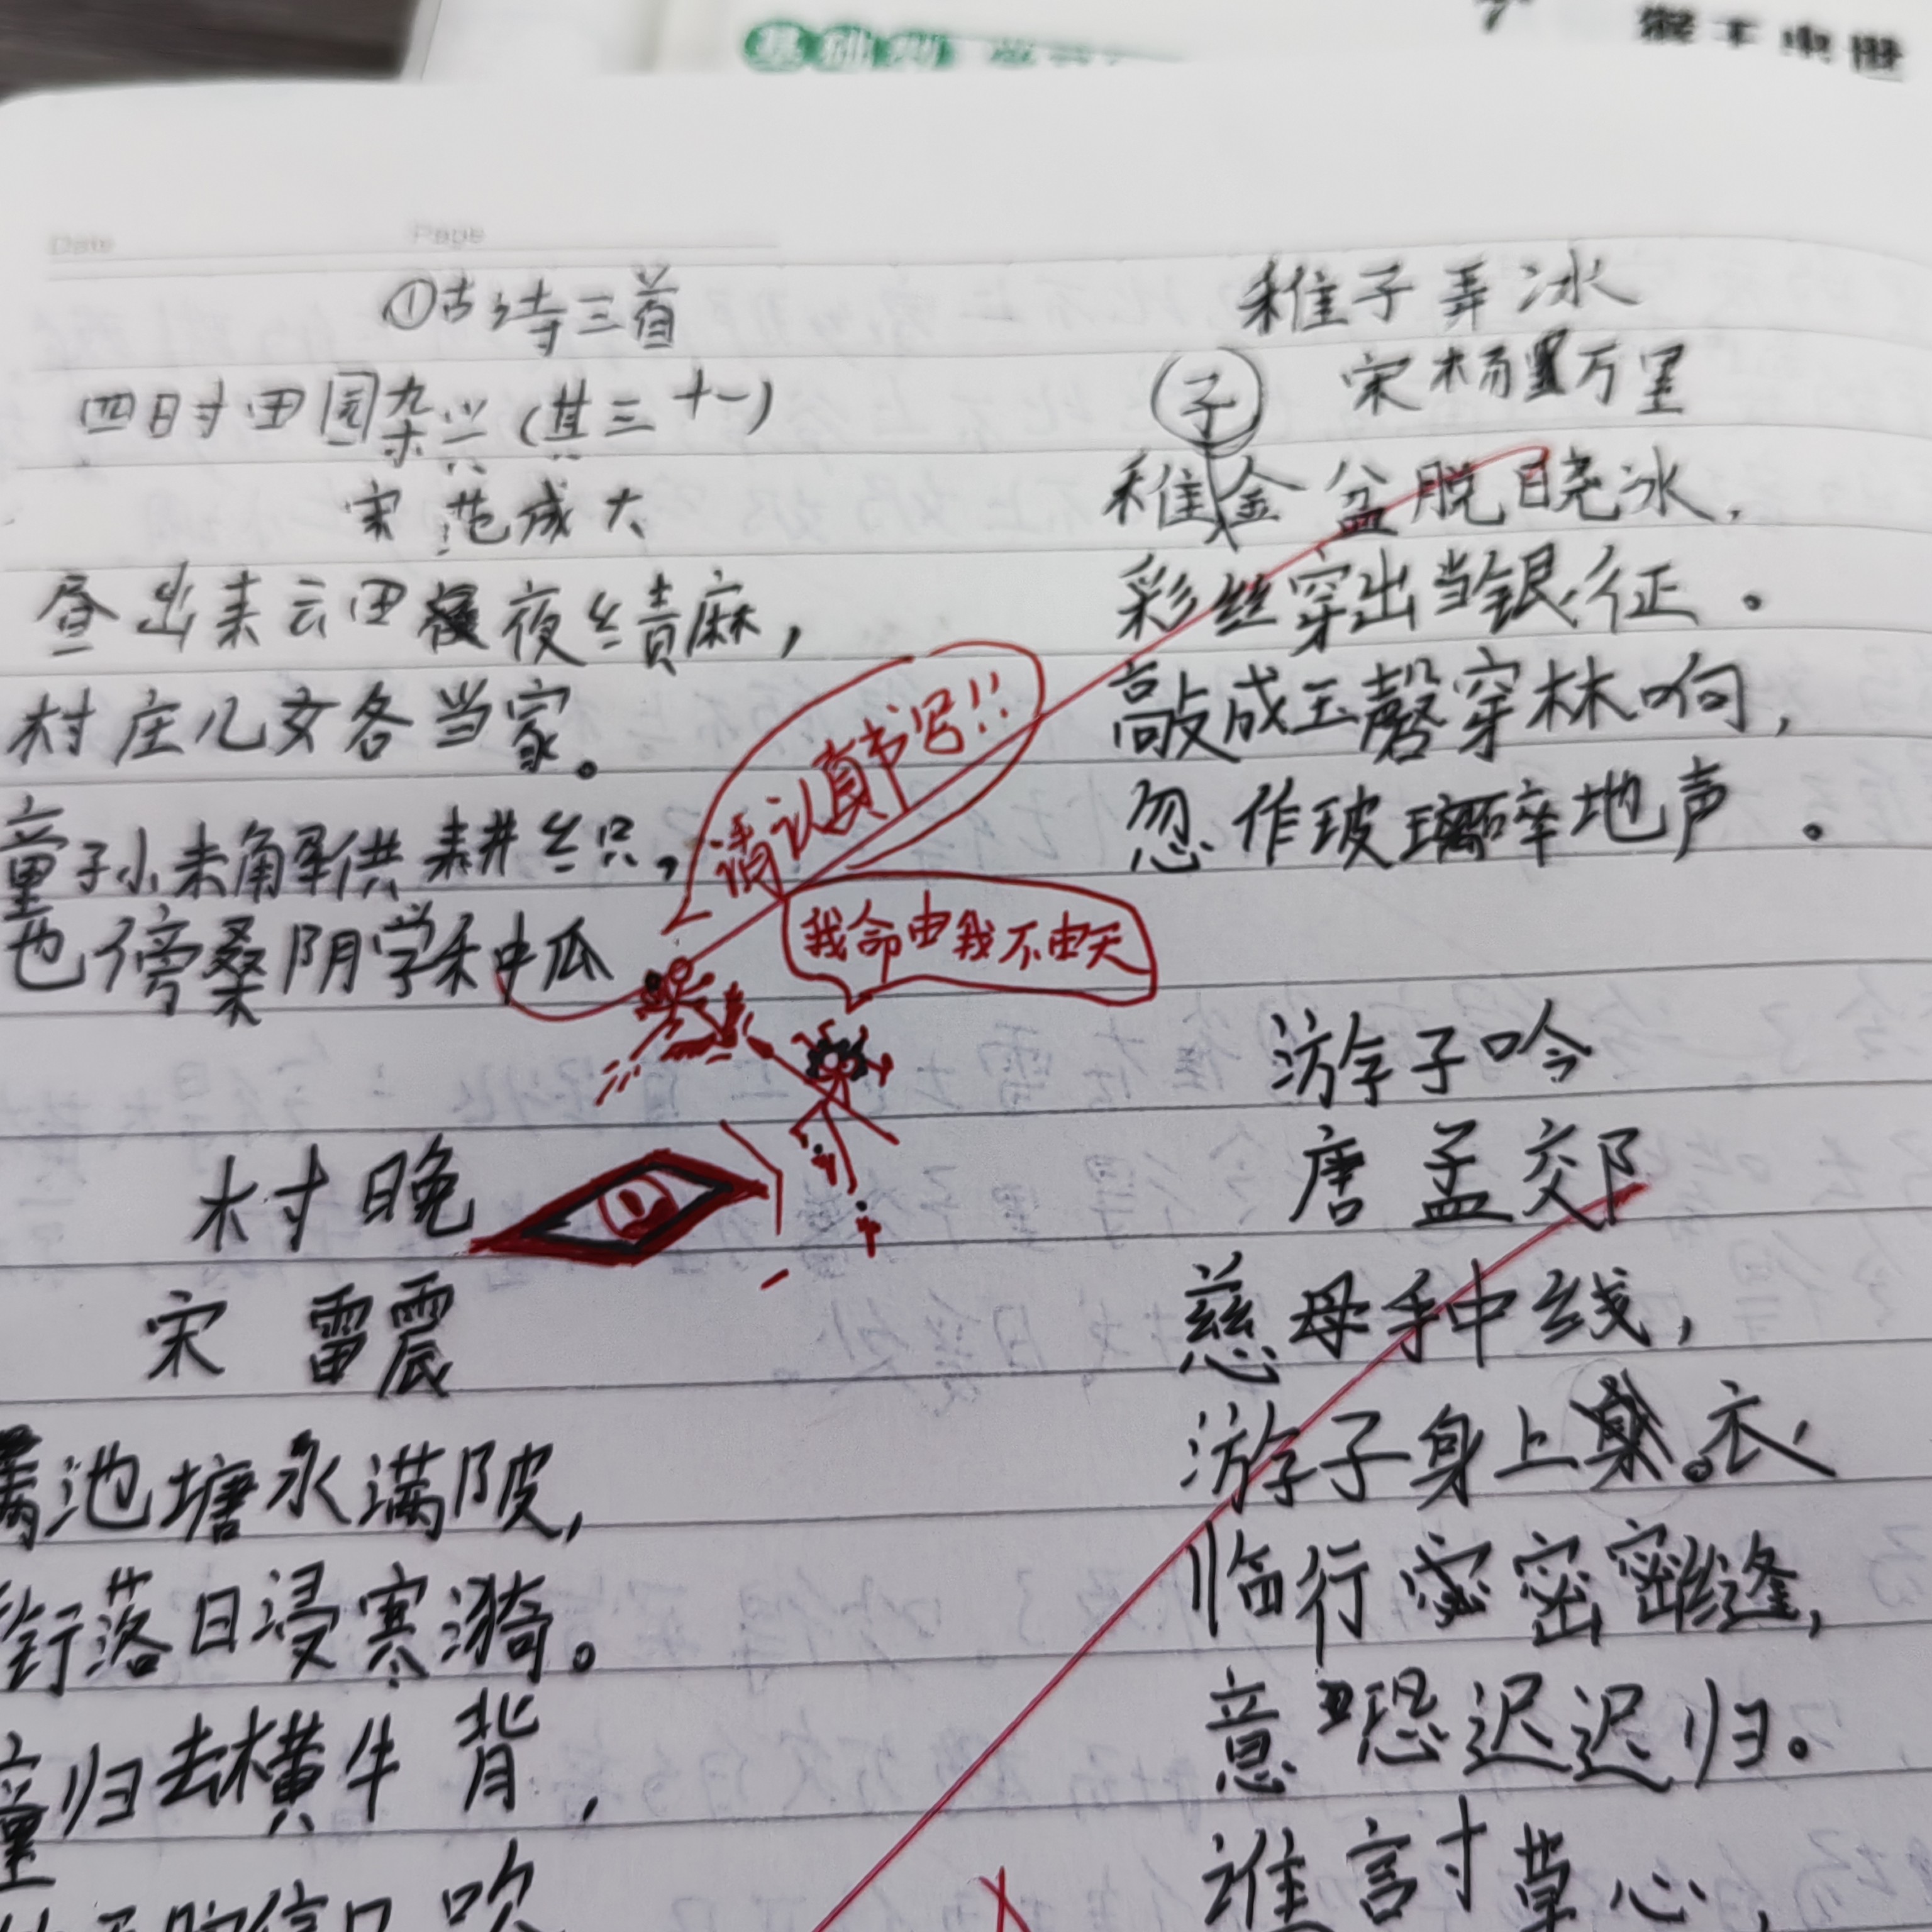 Date
Page
①古诗三首
四时田园杂兴(其三十一)
宋 范成大
昼出耘田夜绩麻,
村庄儿女各当家。
童子孙未解供耕织,
也傍桑阴学种瓜
村晚
宋 雷震
池塘水满陂,
落日浸寒漪。
童归去横牛背,
稚子弄冰
子
宋杨万里
稚金盆脱晓冰,
彩丝穿出当银征。
敲成玉磬穿林响,
忽作玻璃碎地声。
请认真书写!!
我命由我不由天
游子吟
唐 孟郊
慈母手中线,
游子身上衣,
临行密密缝,
意恐迟迟归。
谁言寸草心,